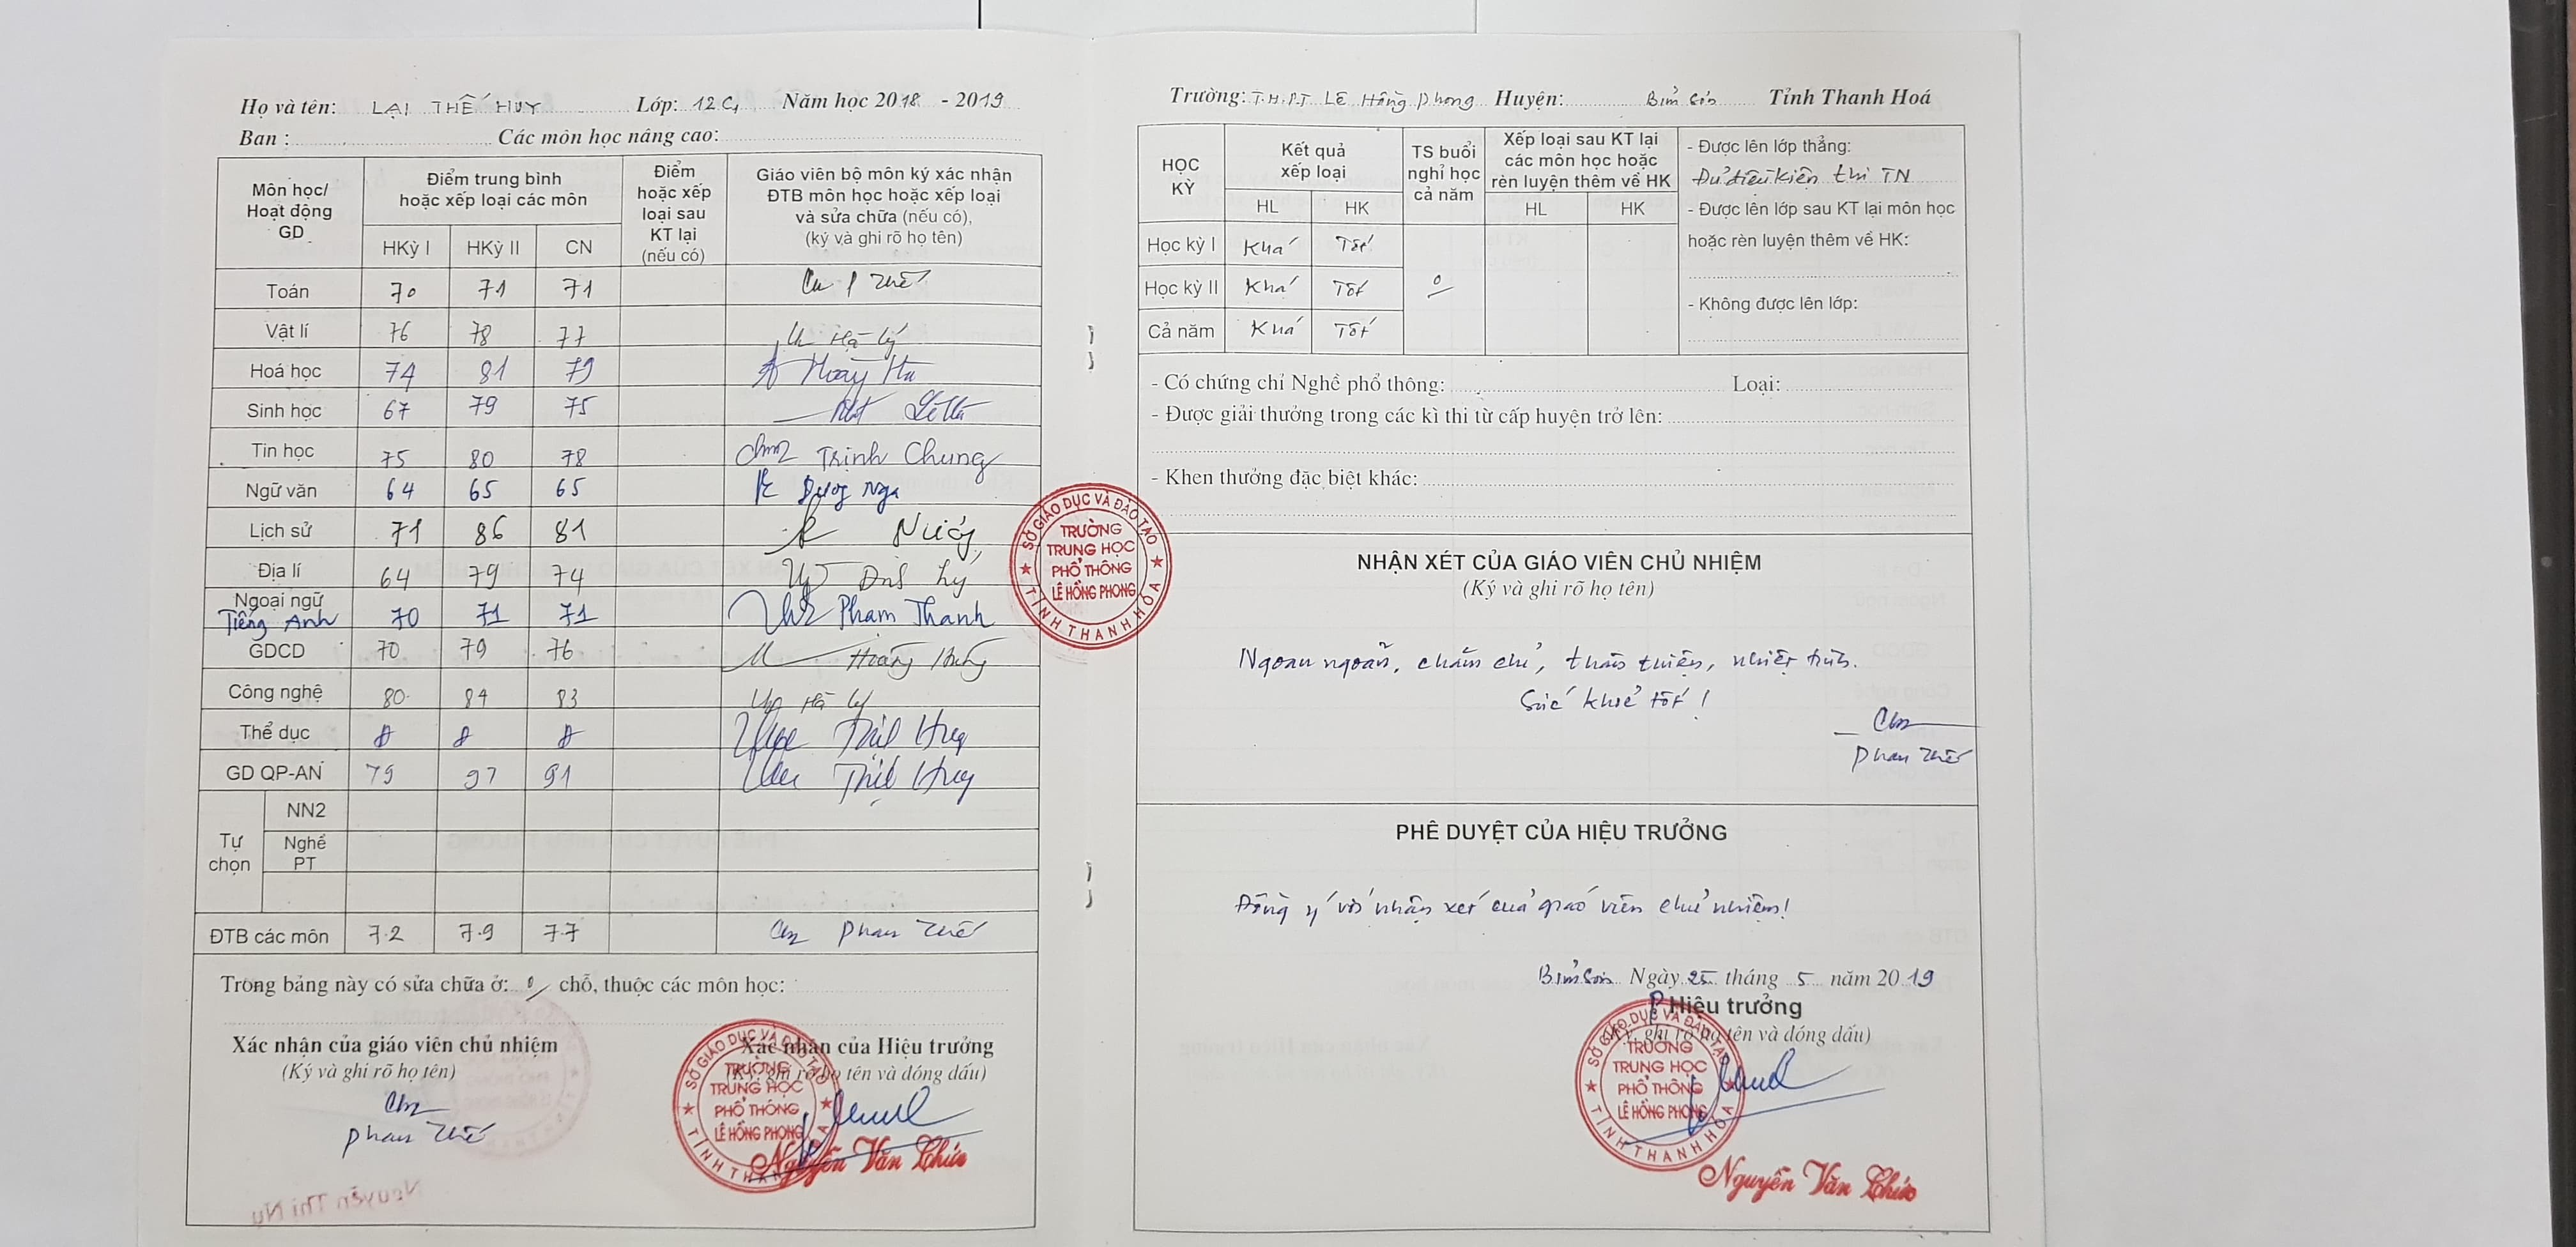 Họ và tên: LẠI THẾ HUY Lớp: 12C1 Năm học 2018 - 2019
Ban : Các môn học nâng cao:
Môn học/ Hoạt động GD
Điểm trung bình hoặc xếp loại các môn
HKỳ I HKỳ II CN
Điểm hoặc xếp loại sau KT lại (nếu có)
Giáo viên bộ môn ký xác nhận ĐTB môn học hoặc xếp loại và sửa chữa (nếu có), (ký và ghi rõ họ tên)
Toán 70 71 71
Vật lí 76 78 77 Hà Lý
Hoá học 74 81 79 Hoàng Hà
Sinh học 67 79 75
Tin học 75 80 78 Trịnh Chung
Ngữ văn 64 65 65 Nga
Lịch sử 71 86 81
Địa lí 64 79 74
Ngoại ngữ
Tiếng Anh 70 71 71 Phạm Thanh
GDCD 70 79 76 Hoàng
Công nghệ 80 84 83 Hà Lý
Thể dục Đ Đ Đ Huy
GD QP-AN 79 97 91 Huy
Tự chọn
NN2
Nghề PT
ĐTB các môn 7.2 7.9 7.7 Phan
Trong bảng này có sửa chữa ở: 0/ chỗ, thuộc các môn học:
Xác nhận của giáo viên chủ nhiệm
(Ký và ghi rõ họ tên)
Phan
Xác nhận của Hiệu trưởng
(Ký, ghi rõ họ tên và đóng dấu)
SỞ GIÁO DỤC VÀ ĐÀO TẠO
TRƯỜNG
TRUNG HỌC
PHỔ THÔNG
LÊ HỒNG PHONG
TỈNH THANH HÓA
Nguyễn Văn Chức
Nguyễn Thị Nụ
SỞ GIÁO DỤC VÀ ĐÀO TẠO
TRƯỜNG
TRUNG HỌC
PHỔ THÔNG
LÊ HỒNG PHONG
TỈNH THANH HÓA
Trường: T.H.P.T Lê Hồng Phong Huyện: Bỉm Sơn Tỉnh Thanh Hoá
HỌC KỲ
Kết quả xếp loại
HL HK
TS buổi nghỉ học cả năm
Xếp loại sau KT lại các môn học hoặc rèn luyện thêm về HK
HL HK
Học kỳ I Khá Tốt
Học kỳ II Khá Tốt 0
Cả năm Khá Tốt
- Được lên lớp thẳng:
Đủ điều kiện thi TN
- Được lên lớp sau KT lại môn học
hoặc rèn luyện thêm về HK:
- Không được lên lớp:
- Có chứng chỉ Nghề phổ thông: Loại:
- Được giải thưởng trong các kì thi từ cấp huyện trở lên:
- Khen thưởng đặc biệt khác:
NHẬN XÉT CỦA GIÁO VIÊN CHỦ NHIỆM
(Ký và ghi rõ họ tên)
Ngoan ngoãn, chăm chỉ, thân thiện, nhiệt tình.
Sức khoẻ tốt!
Phan
PHÊ DUYỆT CỦA HIỆU TRƯỞNG
Đồng ý với nhận xét của giáo viên chủ nhiệm!
Bỉm Sơn Ngày 25 tháng 5 năm 2019
P Hiệu trưởng
(Ký, ghi rõ họ tên và đóng dấu)
SỞ GIÁO DỤC VÀ ĐÀO TẠO
TRƯỜNG
TRUNG HỌC
PHỔ THÔNG
LÊ HỒNG PHONG
TỈNH THANH HÓA
Nguyễn Văn Chức